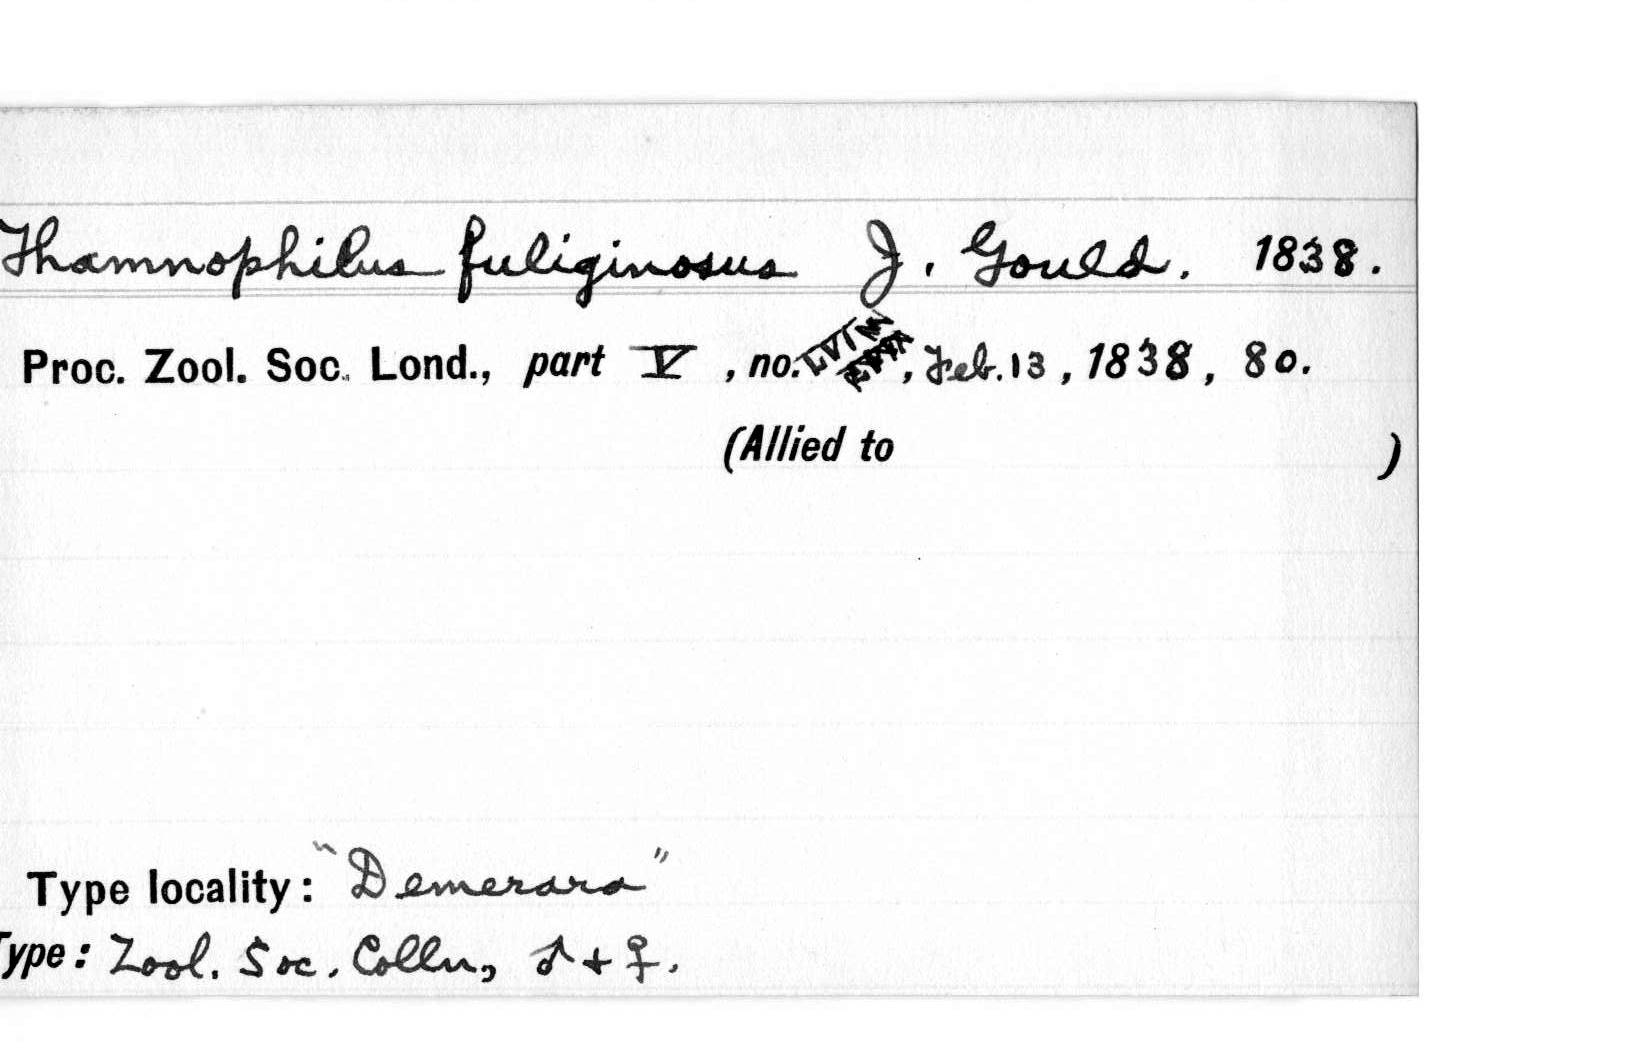 Thamnophilus fuliginosus J. Gould. 1838.
Proc. Zool. Soc. Lond., part V , no. LVIII , Feb. 13 , 1838 , 80.
(Allied to )
Type locality: "Demerara"
Type: Zool. Soc. Colln, ♂ + ♀.